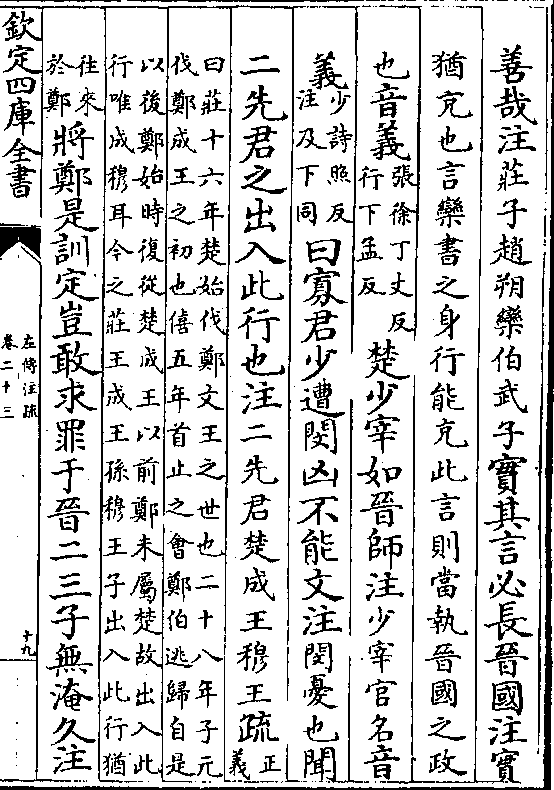 善哉注莊子趙朔欒伯武子實其言必長晉國注實
猶充也言欒書之身行能充此言則當執晉國之政
也音義張徐丁丈反行下孟反楚少宰如晉師注少宰官名音
義少詩照反注及下同曰寡君少遭閔凶不能文注閔憂也聞
二先君之出入此行也注二先君楚成王穆王疏正義
曰莊十六年楚始伐鄭文王之世也二十八年子元
伐鄭成王之初也僖五年首止之會鄭伯逃歸自是
以後鄭始時復從楚成王以前鄭未屬楚故出入此
行唯成穆耳今之莊王成王孫穆王子出入此行猶
往來於鄭將鄭是訓定豈敢求罪于晉二三子無淹久注
欽定四庫全書
左傳注疏
卷二十三
十九